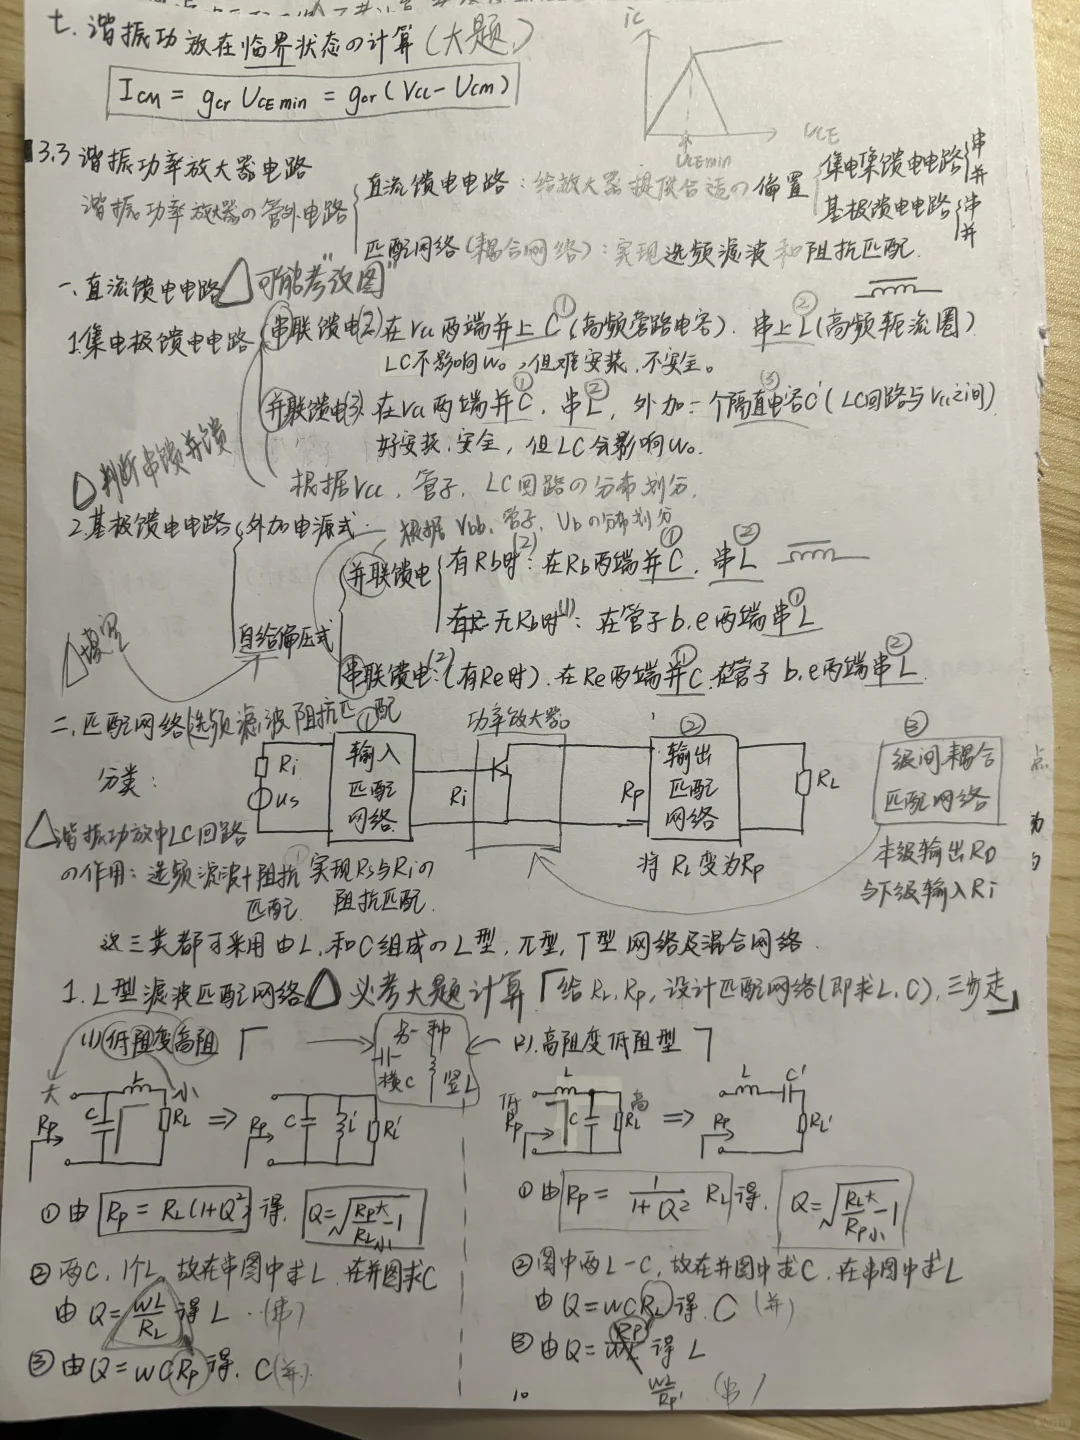 七.谐振功放在临界状态の计算(大题)
ICM = gcr UCEmin = gcr (VCC - Ucm)
ic
UCE
UCEmin
3.3 谐振功率放大器电路
谐振功率放大器の管外电路
直流馈电电路:给放大器提供合适の偏置
集电集馈电电路 串 并
基极馈电电路 串 并
匹配网络(耦合网络):实现选频滤波和阻抗匹配.
一.直流馈电电路 △可能考"改图"
1.集电极馈电电路
串联馈电(2)在Vcc两端并上C①(高频管路电容).串上L②(高频轭流圈)
LC不影响W₀,但难安装.不安全。
并联馈电(3).在Vcc两端并C①,串L②,外加一个隔直电容C'③(LC回路与Vcc之间)
好安装.安全,但LC会影响W₀.
△判断串馈并馈
根据Vcc,管子,LC回路の分布划分.
2.基极馈电电路
外加电源式: 根据Vbb,管子,Ubの分布划分
自给偏压式
并联馈电
有Rb时(2):在Rb两端并C①,串L②
无Rb时(1):在管子b.e两端串L①
串联馈电(2):(有Re时).在Re两端并C①.在管子b.e两端串L②.
二.匹配网络(选频滤波阻抗匹配
分类:
Ri
us
① 输入匹配网络
功率放大器。
Ri
Rp
② 输出匹配网络
RL
③ 级间耦合匹配网络
△谐振功放中LC回路
の作用:选频滤波+阻抗匹配.
实现Rs与Riの阻抗匹配.
将RL变为Rp
本级输出RD
与下级输入Ri
这三类都可采用由L,和C组成のL型,π型,T型网络及混合网络.
1.L型滤波匹配网络△必考大题计算「给RL,Rp,设计匹配网络(即求L,C),三步走」
(1)低阻变高阻
另一种
横C 竖L
(2).高阻变低阻型
大 L 小
Rp C RL ⇒ Rp C L' RL'
低 L 高
Rp C RL ⇒ L C' Rp RL'
①由 Rp = RL(1+Q²) 得. Q=√(Rp大/RL小 -1)
②两C,1个L,故在串图中求L,在并图求C
由Q=WL/RL得L.(串)
③由Q=WCRp得.C(并).
①由 Rp = 1/(1+Q²) RL 得. Q=√(RL大/Rp小 -1)
②图中两L一C,故在并图中求C,在串图中求L
由Q=WCRL得.C(并)
③由Q= 得L
WL/Rp (串)
10